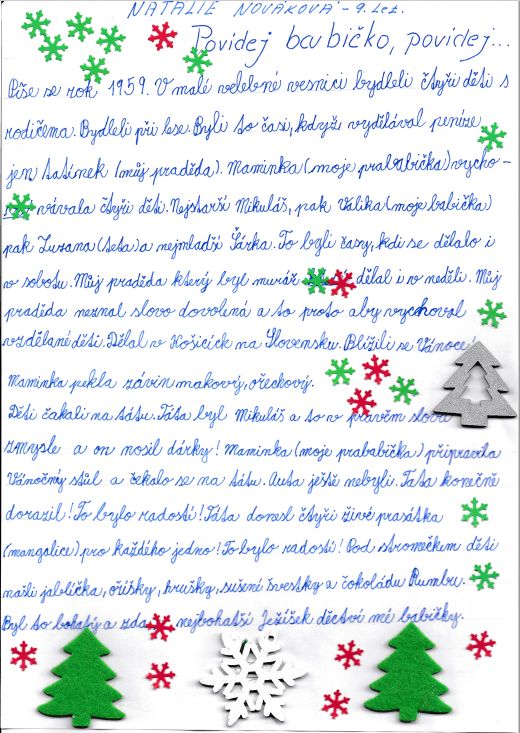 NATALIE NOVÁKOVÁ - 9. Let.
Povídej babičko, povídej...
Píše se rok 1959. V malé velebné vesnici bydleli čtyři děti s
rodičema. Bydleli při lese. Byli to časi, kdyži vydělával peníze
jen tatínek (můj praděda). Maminka (moje prababička) vycho-
vávala čtyři děti. Nejstarší Mikuláš, pak Valika (moje babička)
pak Zuzana (teta) a nejmladší Šárka. To byli časy, kdi se dělalo i
v sobotu. Můj praděda který byl murář dělal i v neděli. Můj
praděda neznal slovo dovolená a to proto aby vychoval
vzdělané děti. Dělal v Košicíck na Slovensku. Blížili se Vánoce!
Maminka pekla závin makový, ořechový.
Děti čakali na tátu. Táta byl Mikuláš a to v pravém slova
zmysle a on nosil dárky! Maminka (moje prababička) připravila
Vánočný stůl a čekalo se na tátu. Auta ještě nebyli. Tata konečně
dorazil! To bylo radostí! Táta donesl čtyři živé prasátka
(mangalice) pro každého jedno! To bylo radostí! Pod stromečkem děti
našli jabĺíčka, oříšky, hrušky, sušené švestky a čokoládu Rumbu.
Byl to bohatý a nejbohatší Ježíšek děctví mé babičky.